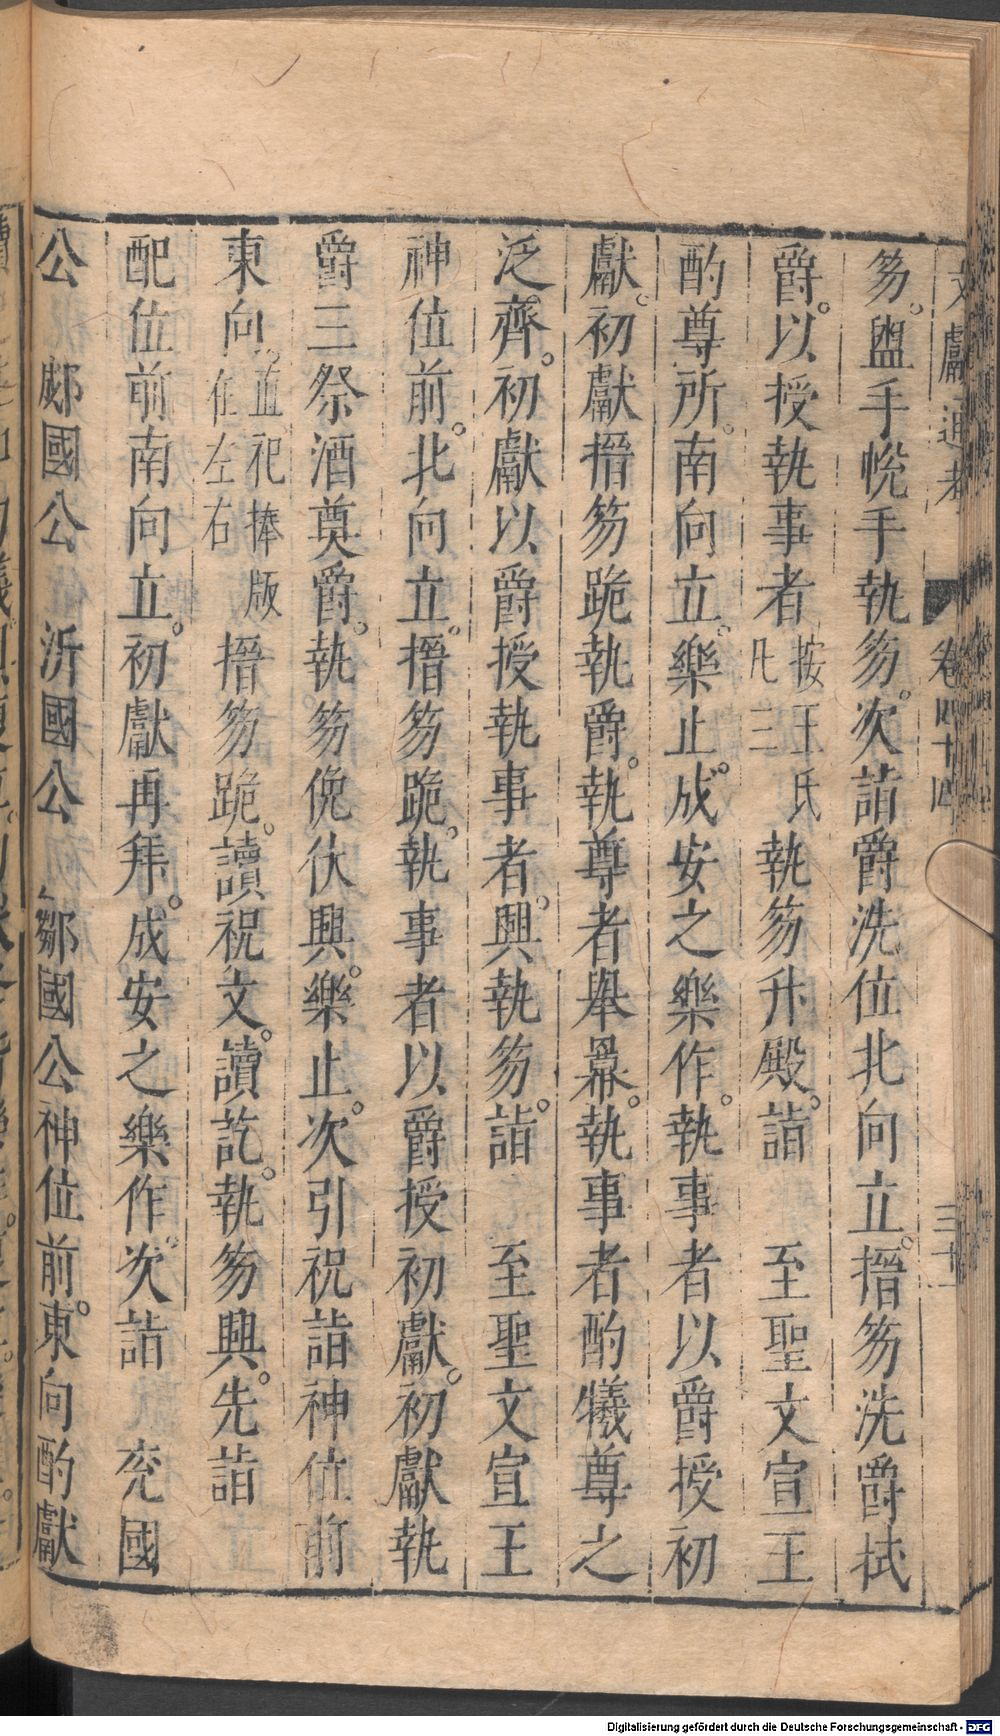 文獻通考 卷四十四 三十一
笏。盥手帨手執笏。次詣爵洗位北向立。搢笏洗爵拭
爵。以授執事者按王氏凡三執笏升殿。詣 至聖文宣王
酌尊所。南向立。樂止。成安之樂作。執事者以爵授初
獻。初獻搢笏跪執爵。執尊者舉羃。執事者酌犧尊之
泛齊。初獻以爵授執事者。興執笏。詣 至聖文宣王
神位前。北向立。搢笏跪。執事者以爵授初獻。初獻執
爵三祭酒奠爵。執笏俛伏興。樂止。次引祝詣神位前
東向。直祀捧版在左右搢笏跪。讀祝文。讀訖。執笏興。先詣
配位前南向立。初獻再拜。成安之樂作。次詣 兗國
公 郕國公 沂國公 鄒國公神位前。東向酌獻
Digitalisierung gefördert durch die Deutsche Forschungsgemeinschaft - DFG